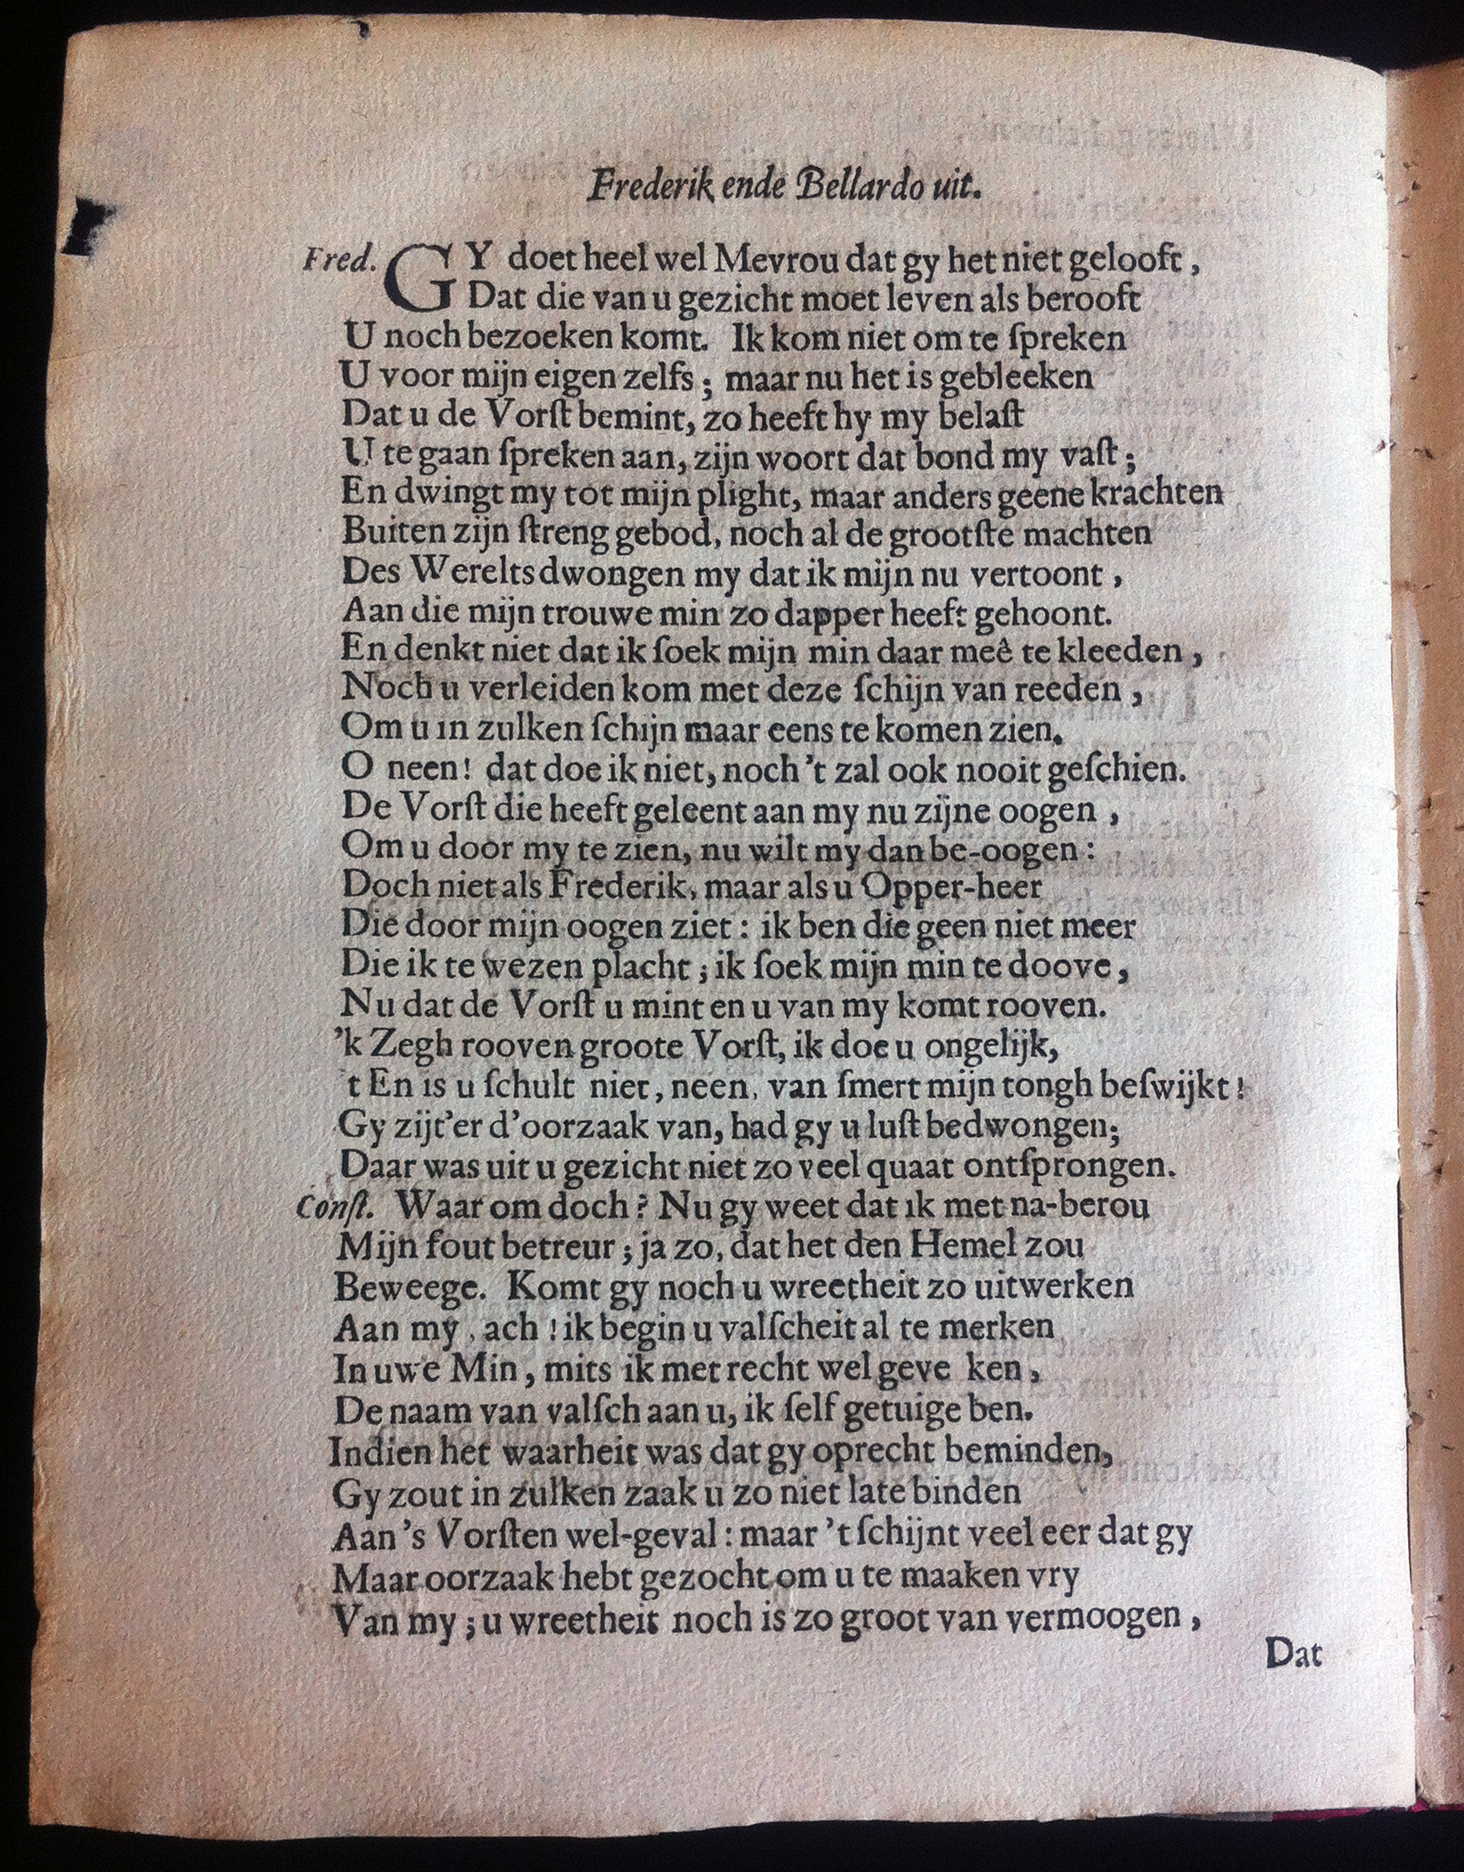 Frederik ende Bellardo uit.
Fred. GY doet heel wel Mevrou dat gy het niet gelooft,
Dat die van u gezicht moet leven als berooft
U noch bezoeken komt. Ik kom niet om te ſpreken
U voor mijn eigen zelfs; maar nu het is gebleeken
Dat u de Vorſt bemint, zo heeft hy my belaſt
U te gaan ſpreken aan, zijn woort dat bond my vaſt;
En dwingt my tot mijn plight, maar anders geene krachten
Buiten zijn ſtreng gebod, noch al de grootſte machten
Des Werelts dwongen my dat ik mijn nu vertoont,
Aan die mijn trouwe min zo dapper heeft gehoont.
En denkt niet dat ik ſoek mijn min daar meê te kleeden,
Noch u verleiden kom met deze ſchijn van reeden,
Om u in zulken ſchijn maar eens te komen zien.
O neen! dat doe ik niet, noch 't zal ook nooit geſchien.
De Vorſt die heeft geleent aan my nu zijne oogen,
Om u door my te zien, nu wilt my dan be-oogen:
Doch niet als Frederik, maar als u Opper-heer
Die door mijn oogen ziet: ik ben die geen niet meer
Die ik te wezen placht; ik ſoek mijn min te doove,
Nu dat de Vorſt u mint en u van my komt rooven.
'k Zegh rooven groote Vorſt, ik doe u ongelijk,
't En is u ſchult niet, neen, van ſmert mijn tongh beſwijkt!
Gy zijt'er d'oorzaak van, had gy u luſt bedwongen;
Daar was uit u gezicht niet zo veel quaat ontſprongen.
Conſt. Waar om doch? Nu gy weet dat ik met na-berou
Mijn fout betreur; ja zo, dat het den Hemel zou
Beweege. Komt gy noch u wreetheit zo uitwerken
Aan my, ach! ik begin u valſcheit al te merken
In uwe Min, mits ik met recht wel geve ken,
De naam van valſch aan u, ik ſelf getuige ben.
Indien het waarheit was dat gy oprecht beminden,
Gy zout in zulken zaak u zo niet late binden
Aan 's Vorſten wel-geval: maar 't ſchijnt veel eer dat gy
Maar oorzaak hebt gezocht om u te maaken vry
Van my; u wreetheit noch is zo groot van vermoogen,
Dat